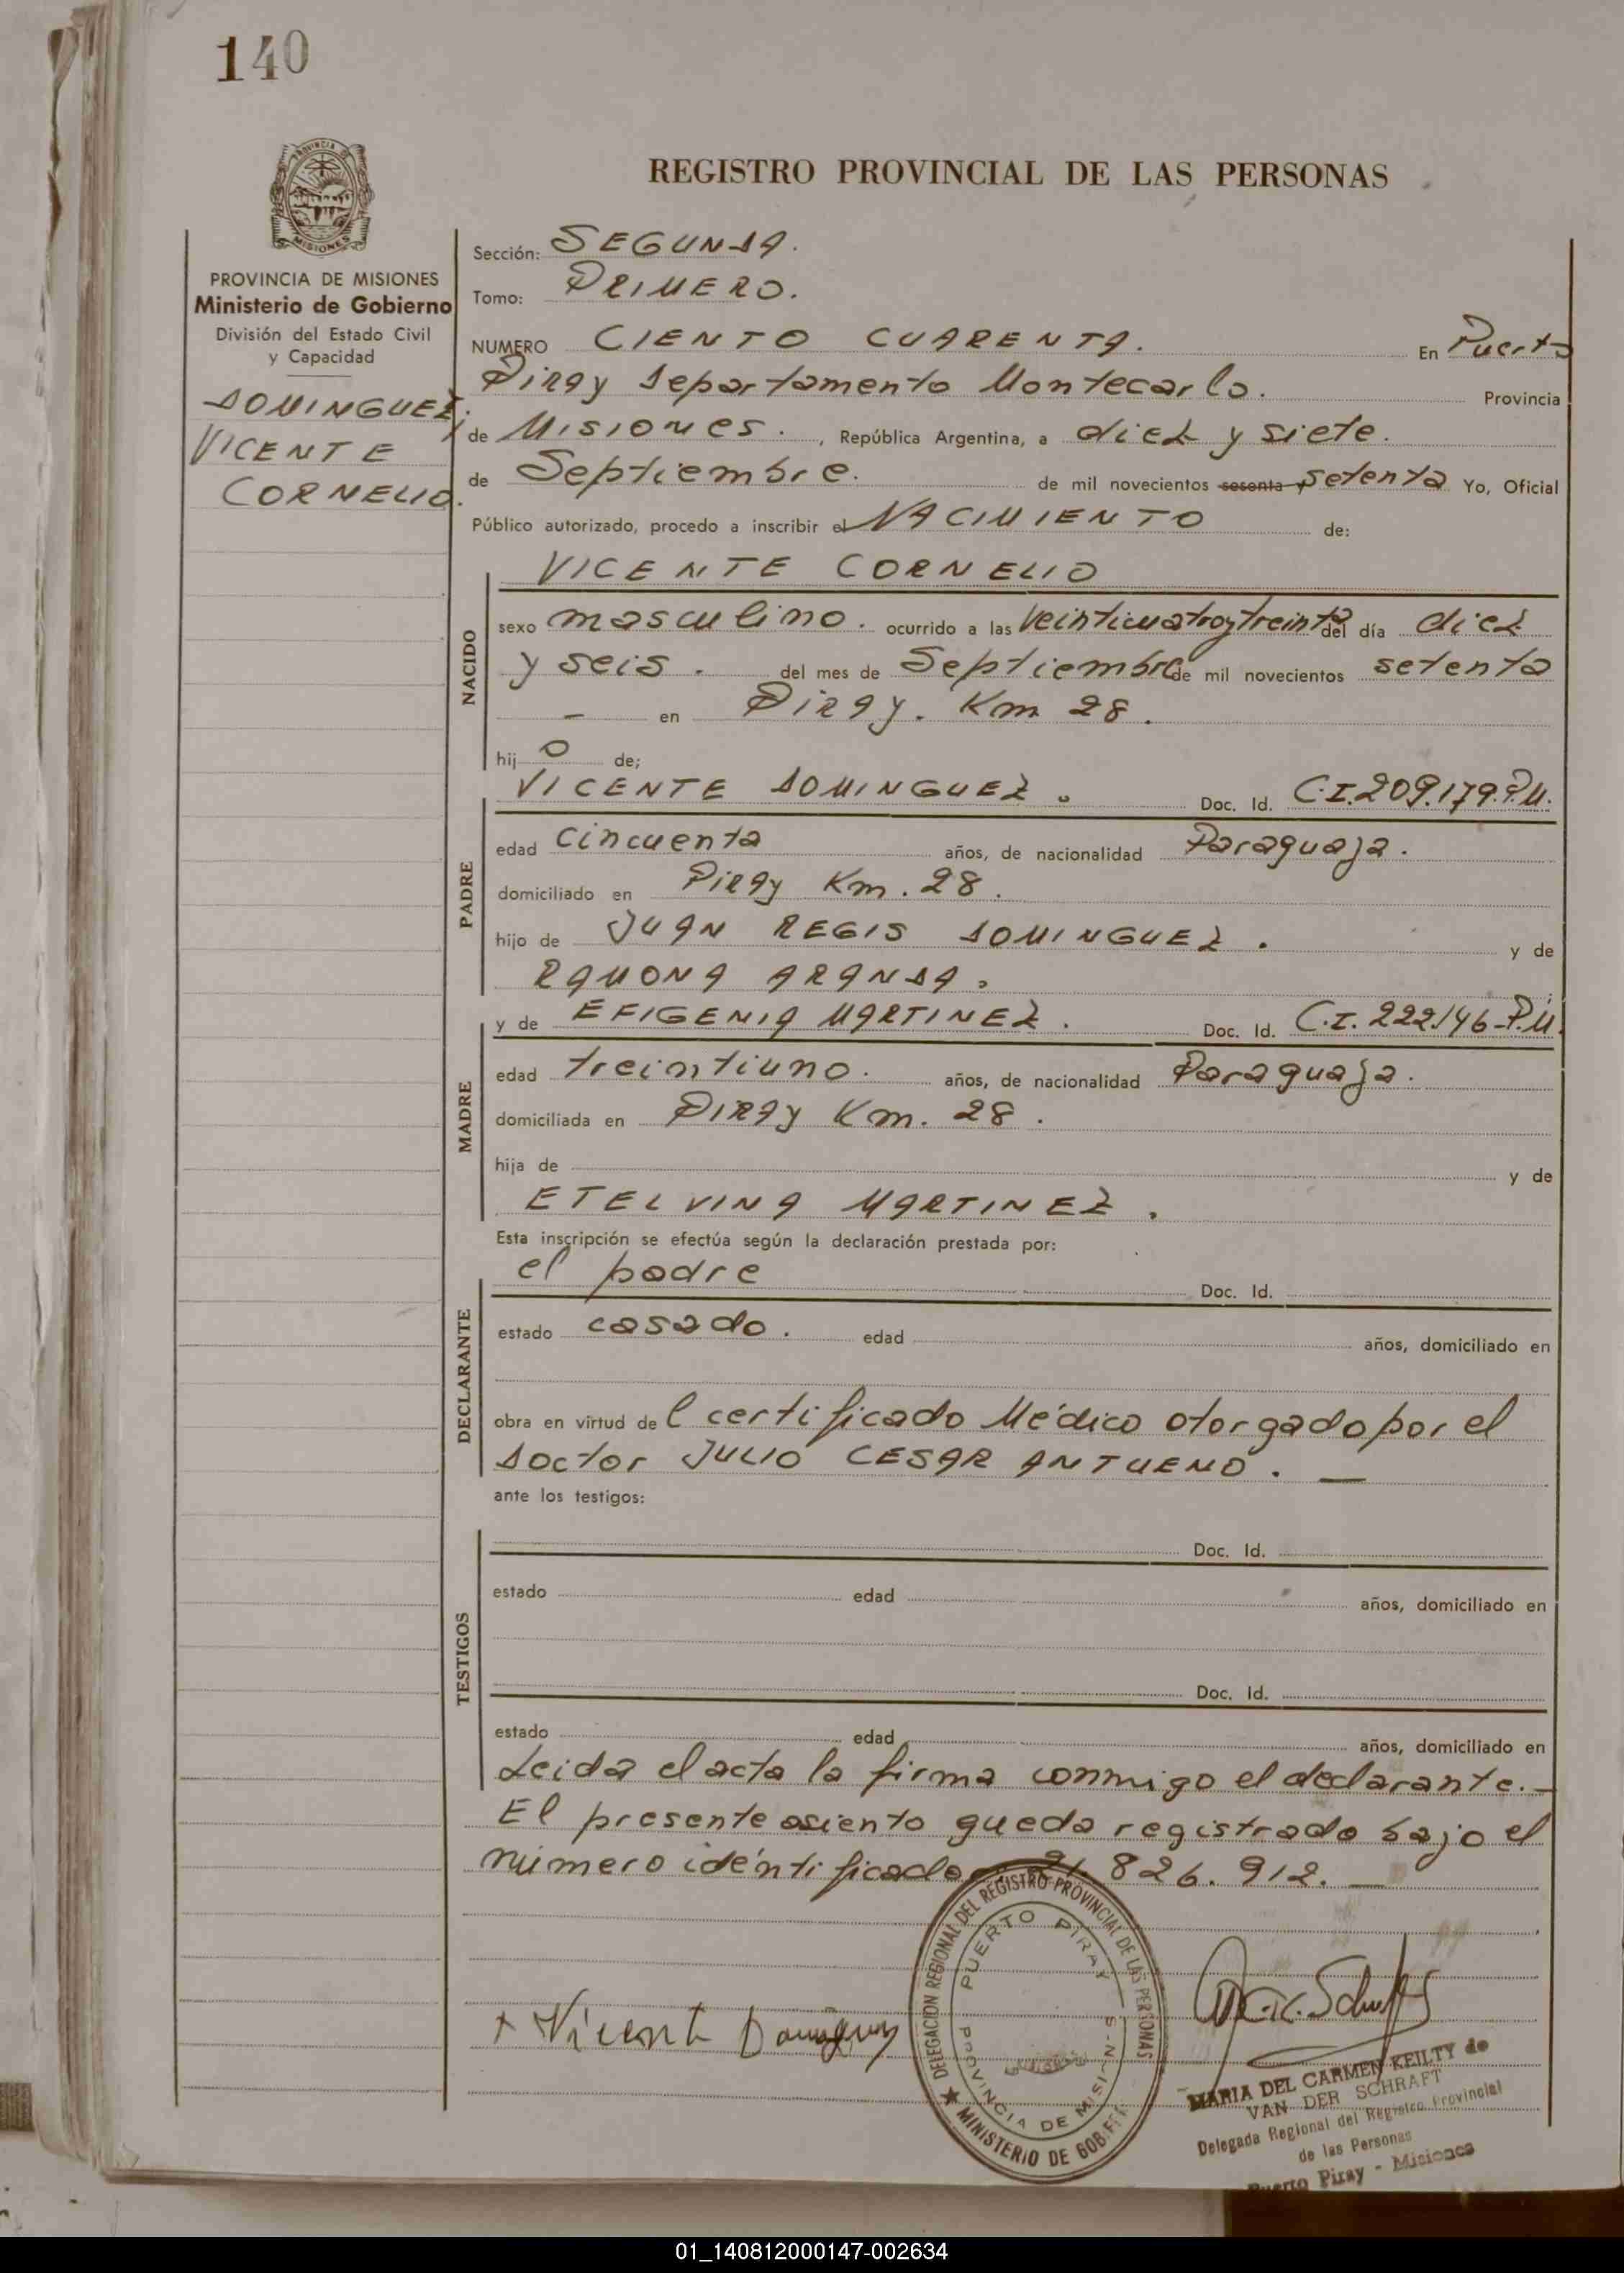 140
REGISTRO PROVINCIAL DE LAS PERSONAS
PROVINCIA
MISIONES
PROVINCIA DE MISIONES
Ministerio de Gobierno
División del Estado Civil
y Capacidad
DOMINGUEZ.
VICENTE
CORNELIO.
Sección: SEGUNDA.
Tomo: PRIMERO.
NUMERO CIENTO CUARENTA. En Puerto
Piray Departamento Montecarlo. Provincia
de Misiones., República Argentina, a diez y siete.
de Septiembre. de mil novecientos sesenta y setenta Yo, Oficial
Público autorizado, procedo a inscribir el NACIMIENTO de:
VICENTE CORNELIO
NACIDO
sexo masculino. ocurrido a las veinticuatroytreinta del día diez
y seis. del mes de Septiembre de mil novecientos setenta
— en Piray. Km 28.
hij o de;
VICENTE DOMINGUEZ. Doc. Id. C.I.209.179.P.M.
PADRE
edad cincuenta años, de nacionalidad Paraguaja.
domiciliado en Piray Km. 28.
hijo de JUAN REGIS DOMINGUEZ. y de
RAMONA ARANDA.
y de EFIGENIA MARTINEZ. Doc. Id. C.I. 222.146-P.M.
MADRE
edad treintiuno. años, de nacionalidad Paraguaja.
domiciliada en Piray Km. 28.
hija de y de
ETELVINA MARTINEZ.
Esta inscripción se efectúa según la declaración prestada por:
el padre Doc. Id.
DECLARANTE
estado casado. edad años, domiciliado en
obra en virtud de l certificado Médico otorgado por el
Doctor JULIO CESAR ANTUENO. —
ante los testigos:
Doc. Id.
TESTIGOS
estado edad años, domiciliado en
Doc. Id.
estado edad años, domiciliado en
Leida el acta la firma conmigo el declarante.—
El presente asiento queda registrado bajo el
número identificado: 21.826.912. —
DELEGACION REGIONAL DEL REGISTRO PROVINCIAL DE LAS PERSONAS
PUERTO PIRAY
PROVINCIA DE MISIONES
★ MINISTERIO DE GOB.
+ Vicente Dominguez
MARIA DEL CARMEN KEILTY de
VAN DER SCHRAFT
Delegada Regional del Registro Provincial
de las Personas
Puerto Piray - Misiones
01_140812000147-002634